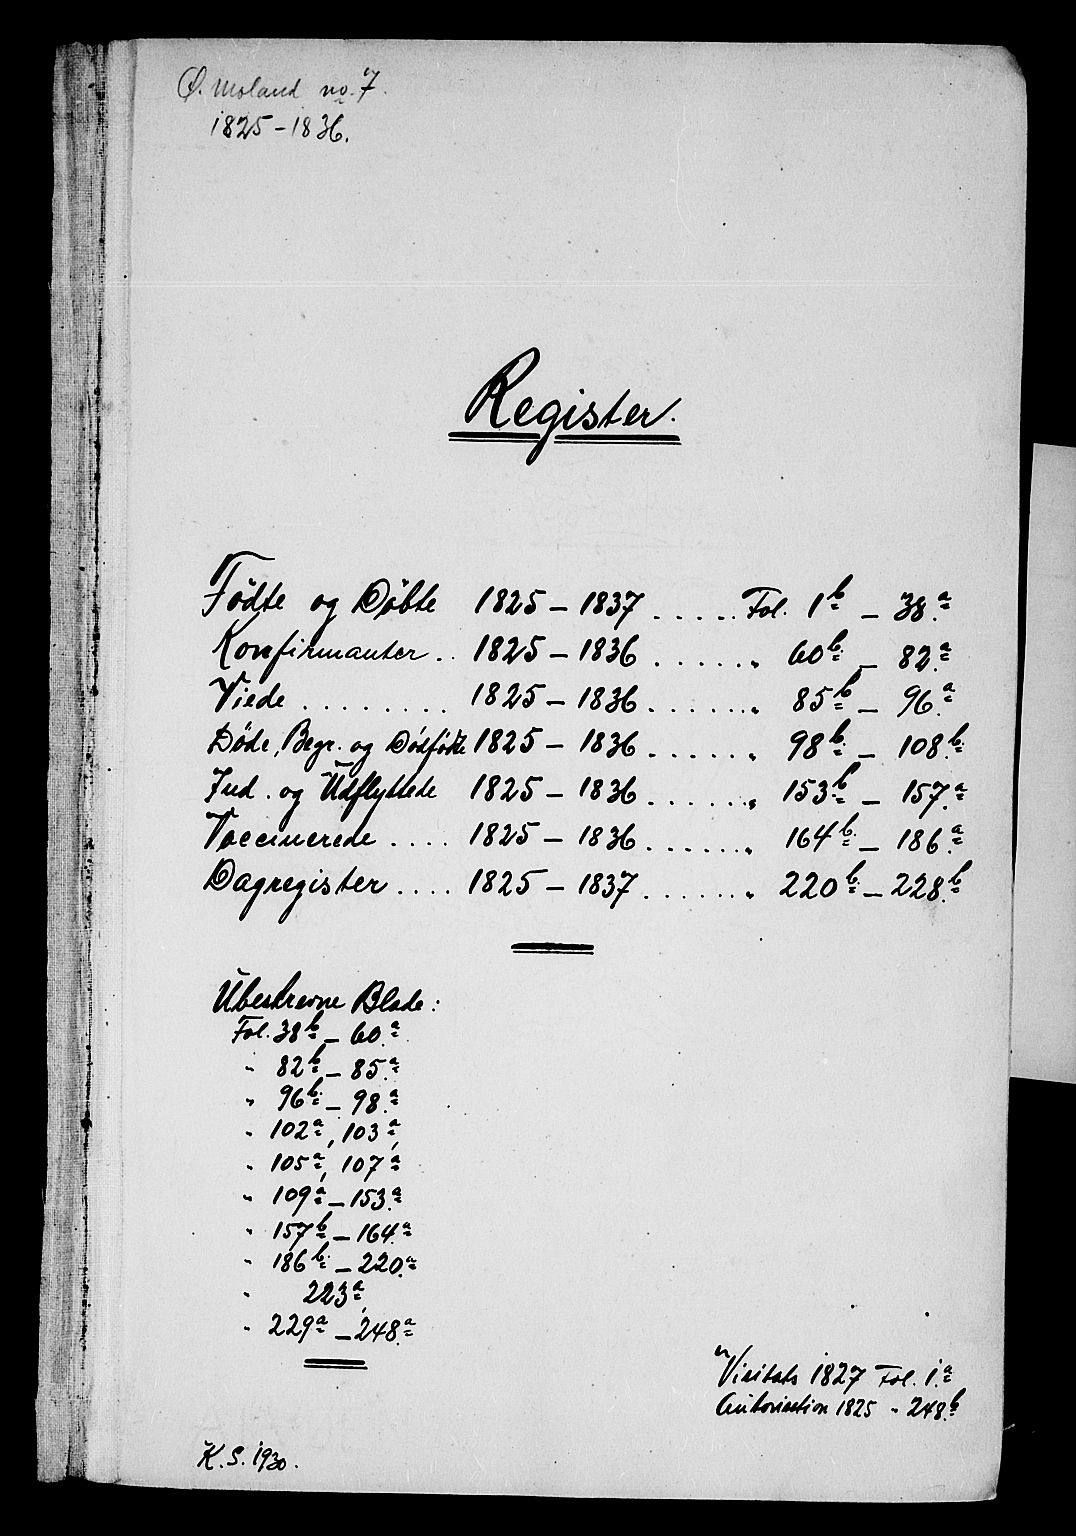 Ø. Moland no. 7.
1825-1836.
Register.
Födte og Döbte 1825 - 1837 . . . . . Fol. 1b - 38a
Konfirmanter . . 1825 - 1836 . . . . . . „ 60b - 82a
Viede . . . . . . . . 1825 - 1836 . . . . . . „ 85b - 96a
Døde, Begr. og Dödfödte 1825 - 1836 . . . . . . „ 98b - 108b
Ind. og Udflyttede 1825 - 1836 . . . . . . „ 153b - 157a
Vaccinerede . . . . 1825 - 1836 . . . . . . „ 164b - 186a
Dagregister . . . . 1825 - 1837 . . . . . . „ 220b - 228b
Ubeskrevne Blade:
Fol. 38b - 60a
„ 82b - 85a
„ 96b - 98a
„ 102a, 103a,
„ 105a, 107a
„ 109a - 153a
„ 157b - 164a
„ 186b - 220a
„ 223a,
„ 229a - 248a
Visitats 1827 Fol. 1a
Autorisation 1825 „ 248b
K. S. 1930.